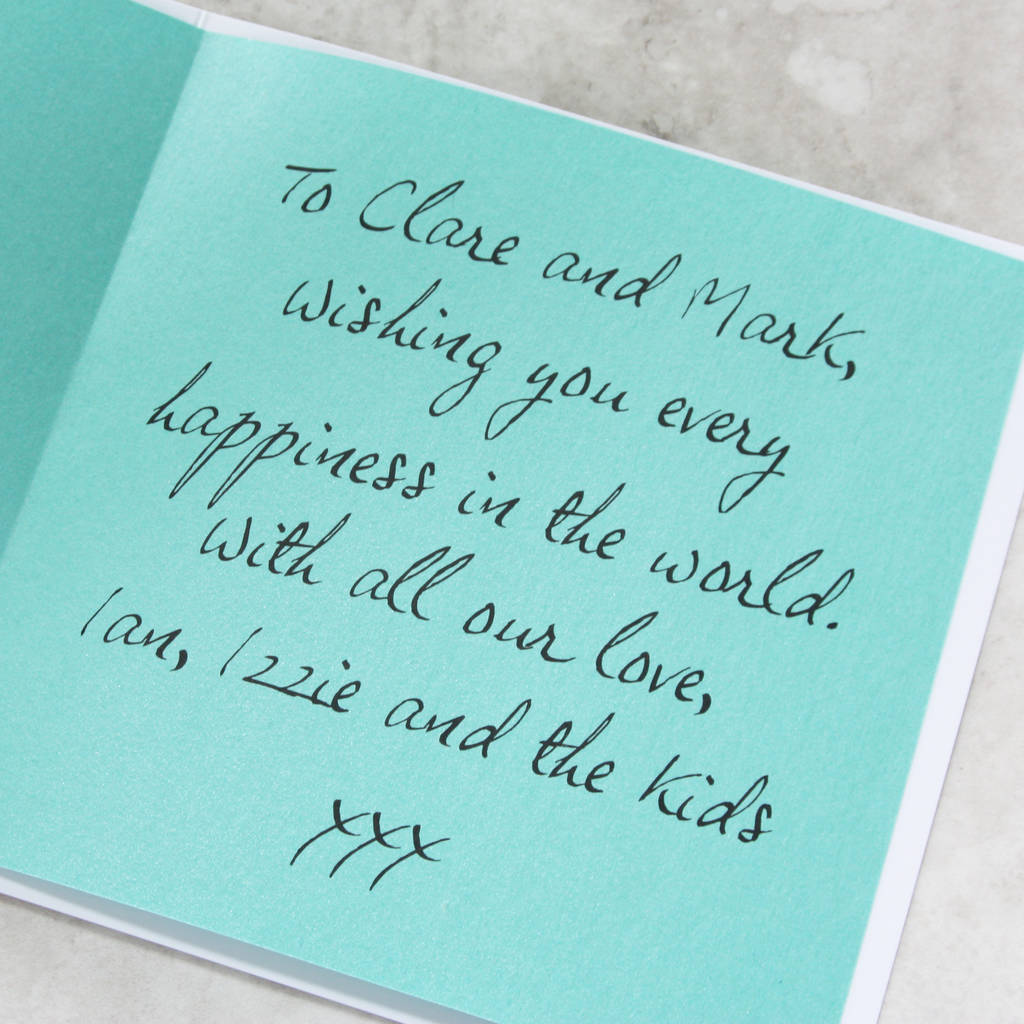 To Clare and Mark,
Wishing you every
happiness in the world.
With all our love,
Ian, Izzie and the Kids
XXX